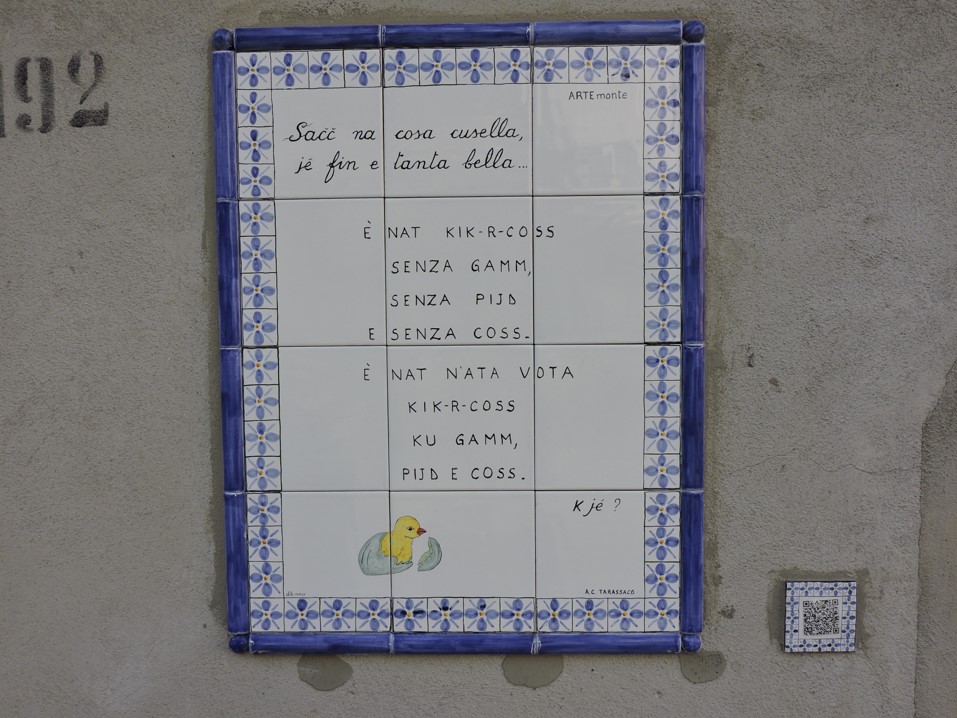 192
ARTEmonte
Sačč na cosa cusella,
jé fin e tanta bella...
È NAT KIK-R-COSS
SENZA GAMM,
SENZA PIJD
E SENZA COSS.
È NAT N'ATA VOTA
KIK-R-COSS
KU GAMM,
PIJD E COSS.
K jé ?
A.C. TARASSACO